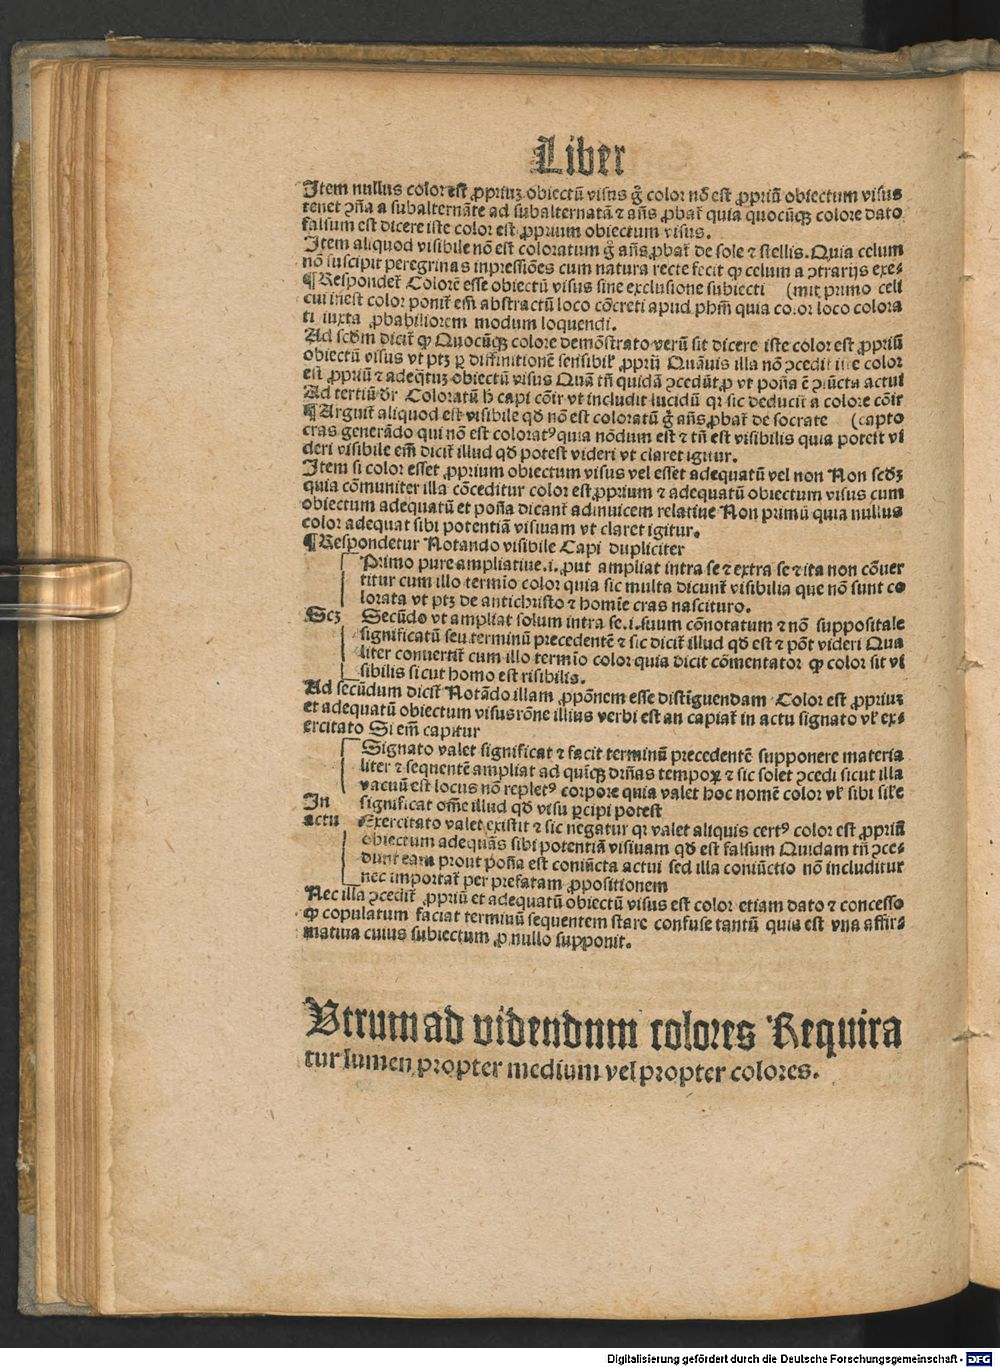 Liber
Item nullus color est ꝓpriuꝫ obiectū visus g̃ color nō est ꝓpriū obiectum visus
tenet ↄña a subalternāte ad subalternatā ⁊ añs ꝓbat̃ quia quocūqꝫ colore dato
falsum est dicere iste color est ꝓprium obiectum visus.
Item aliquod visibile nō est coloratum g̃ añs ꝓbat̃ de sole ⁊ stellis. Quia celum
nō suscipit peregrinas inpressiões cum natura recte fecit qꝫ celum a ↄtrarijs exe⸗
¶Respondet̃ Colorē esse obiectū visus sine exclusione subiecti (mit primo celi
cui inest color ponit̃ em̃ abstractū loco cōcreti apud phm̃ quia color loco colora
ti iuxta ꝓbabiliorem modum loquendi.
Ad scd̃m dicit̃ qꝫ Quocūqꝫ colore demōstrato verū sit dicere iste color est ꝓpriū
obiectū visus vt ptꝫ ꝑ diffinitionē sensibil̃ ꝓprij Quāuis illa nō ↄcedit̃ iste color
est ꝓpriū ⁊ adeq̃tuꝫ obiectū visus Quā tñ quidā ↄcedūt ꝓ vt poña ē ↄiūcta actui
Ad tertiū dr̃ Coloratū h̃ capi cōit̃ vt includit lucidū qr̃ sic deducit̃ a colore cōit̃
¶Arguit̃ aliquod est visibile qd̃ nō est coloratū g̃ añs ꝓbat̃ de socrate (capto
cras generādo qui nō est coloratꝰ quia nōdum est ⁊ tñ est visibilis quia poteit vi
deri visibile em̃ dicit̃ illud qd̃ potest videri vt claret igitur.
Item si color esset ꝓprium obiectum visus vel esset adequatū vel non Non scd̃ꝫ
quia cōmuniter illa cōceditur color est ꝓprium ⁊ adequatū obiectum visus cum
obiectum adequatū et poña dicant̃ adinuicem relatiue Non primū quia nullus
color adequat sibi potentiā visiuam vt claret igitur.
¶Respondetur Notando visibile Capi dupliciter
Primo pure ampliatiue .i. ꝓut ampliat intra se ⁊ extra se ⁊ ita non cōuer
titur cum illo termīo color quia sic multa dicunt̃ visibilia que nō sunt co
lorata vt ptꝫ de antichristo ⁊ homīe cras nascituro.
Scꝫ Secūdo vt ampliat solum intra se .i. suum cōnotatum ⁊ nō suppositale
significatū seu terminū precedentē ⁊ sic dicit̃ illud qd̃ est ⁊ pōt videri Qua
liter conuertit̃ cum illo termīo color quia dicit cōmentator qꝫ color sit vi
sibilis sicut homo est risibilis.
Ad secūdum dicit̃ Notādo illam ꝓpōnem esse distīguendam Color est ꝓpriuꝫ
et adequatū obiectum visus rōne illius verbi est an capiat̃ in actu signato vl̃ ex⸗
ercitato Si em̃ capitur
Signato valet significat ⁊ facit terminū precedentē supponere materia
liter ⁊ sequentē ampliat ad quīqꝫ drñas tempoꝝ ⁊ sic solet ↄcedi sicut illa
vacuū est locus nō repletꝰ corpore quia valet hoc nomē color vl̃ sibi sil̃e
In significat om̃e illud qd̃ visu ꝑcipi potest
actu Exercitato valet existit ⁊ sic negatur qr̃ valet aliquis certꝰ color est ꝓpriū
obiectum adequās sibi potentiā visiuam qd̃ est falsum Quidam tñ ↄce⸗
dunt eam prout poña est coniūcta actui sed illa coniūctio nō includitur
nec importat̃ per prefatam ꝓpositionem
Nec illa ↄcedit̃ ꝓpriū et adequatū obiectū visus est color etiam dato ⁊ concesso
qꝫ copulatum faciat terminū sequentem stare confuse tantū quia est vna affir⸗
matiua cuius subiectum ꝓ nullo supponit.
Vtrum ad videndum colores Requira
tur lumen propter medium vel propter colores.
Digitalisierung gefördert durch die Deutsche Forschungsgemeinschaft - DFG